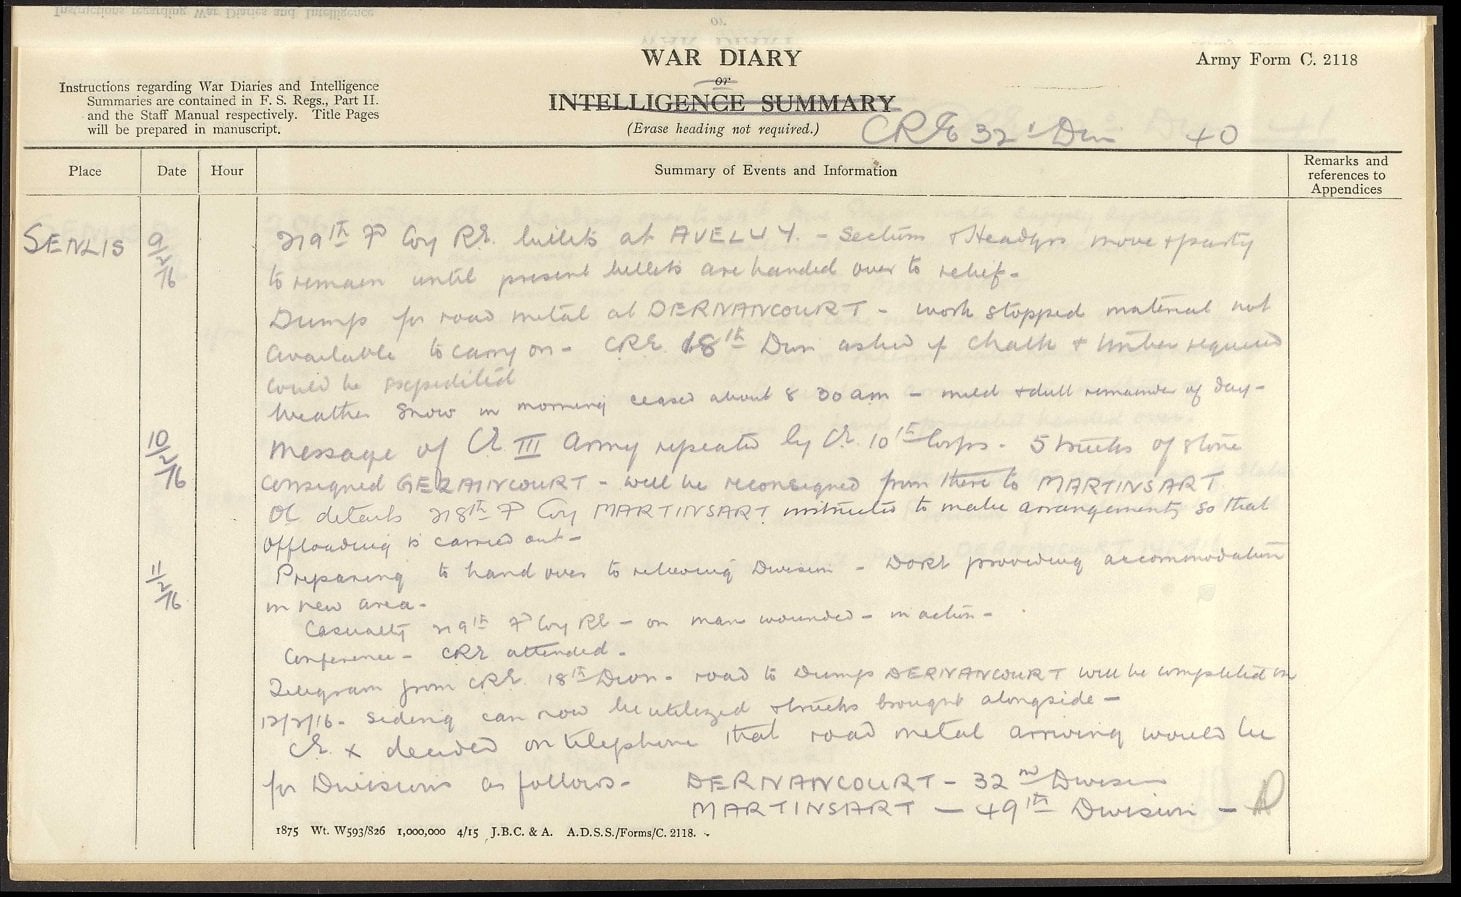 WAR DIARY
or
INTELLIGENCE SUMMARY
(Erase heading not required.)
Army Form C. 2118
Instructions regarding War Diaries and Intelligence
Summaries are contained in F. S. Regs., Part II.
and the Staff Manual respectively. Title Pages
will be prepared in manuscript.
CRE 32 Div 40
Place Date Hour Summary of Events and Information Remarks and
references to
Appendices
SENLIS 9/2/16 219th F Coy RE. billets at AVELUY. - Section & Headqrs move & party
to remain until present billets are handed over to relief -
Dumps for road metal at DERNANCOURT - work stopped material not
available to carry on - CRE 18th Divn asked if chalk & timber required
could be expedited
Weather Snow in morning ceased about 8 30 am - mild & dull remainder of day -
10/2/16 Message of CE III Army repeated by CE. 10th Corps - 5 trucks of stone
consigned GEZAINCOURT - will be reconsigned from there to MARTINSART
OC details 218th F Coy MARTINSART instructed to make arrangements so that
offloading is carried out -
11/2/16 Preparing to hand over to relieving Division - Work providing accommodation
in new area -
Casualty 219th F Coy RE - on man wounded - in action -
Conference - CRE attended -
Telegram from CRE. 18th Divn - road to Dumps DERNANCOURT will be completed on
12/2/16 - siding can now be utilized & trucks brought alongside -
CE. X decided on telephone that road metal arriving would be
for Divisions as follows - DERNANCOURT - 32nd Division
MARTINSART - 49th Division -
1875 Wt. W593/826 1,000,000 4/15 J.B.C. & A. A.D.S.S./Forms/C. 2118.